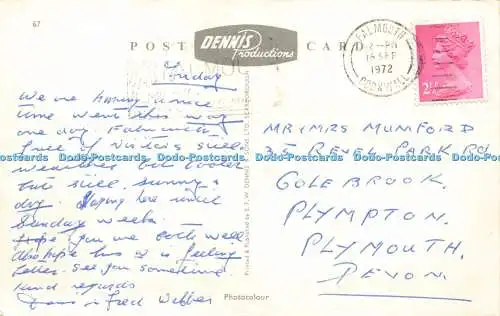 67
POST CARD
DENNIS
Productions
FALMOUTH
2-PM
15 SEP
1972
CORNWALL
2½
Friday
We are having a nice
time went this way
one day. Falmouth
full of visitors still
weather bit cooler
but still sunny &
dry. Staying here until
Sunday week.
hope you are both well
Also hope is feeling
better. See you sometime
kind regards
Fred Webber
MR & MRS MUMFORD
35 REVEL PARK RD
COLEBROOK,
PLYMPTON.
PLYMOUTH.
DEVON.
Printed & Published by E.T.W. DENNIS & SONS LTD. SCARBOROUGH
Photocolour
Dodo-Postcards Dodo-Postcards Dodo-Postcards Dodo-Postcards Dodo-Postcards